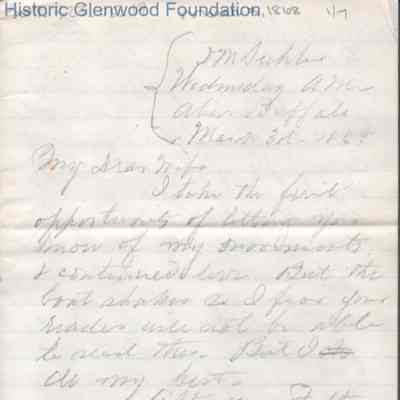 Historic Glenwood Foundation
1/7
Wednesday
Above Buffalo
March 3d
My Dear Wife
I take the first
opportunity of letting you
know of my movements
& continued love. But the
boat shakes so I fear your
readers will not be able
to read this. But I
do my best.